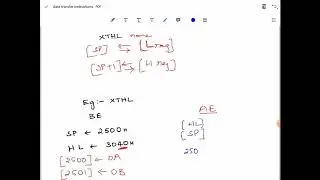 data transfer instructions PDF
XTHL name
[SP] ⇆ [L reg]
[SP+1] ⇆ [H reg]
Eg:- XTHL
BE
AE
SP ← 2500H
[HL]
HL ← 3040H
[SP]
[2500] ← 0A
250
[2501] ← 0B